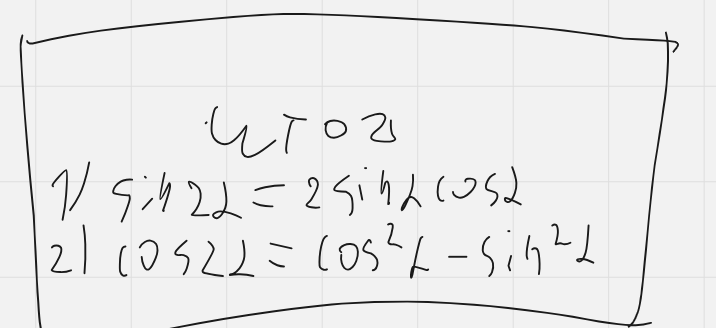 Итог
1) sin2α = 2sinα cosα
2) cos2α = cos²α - sin²α